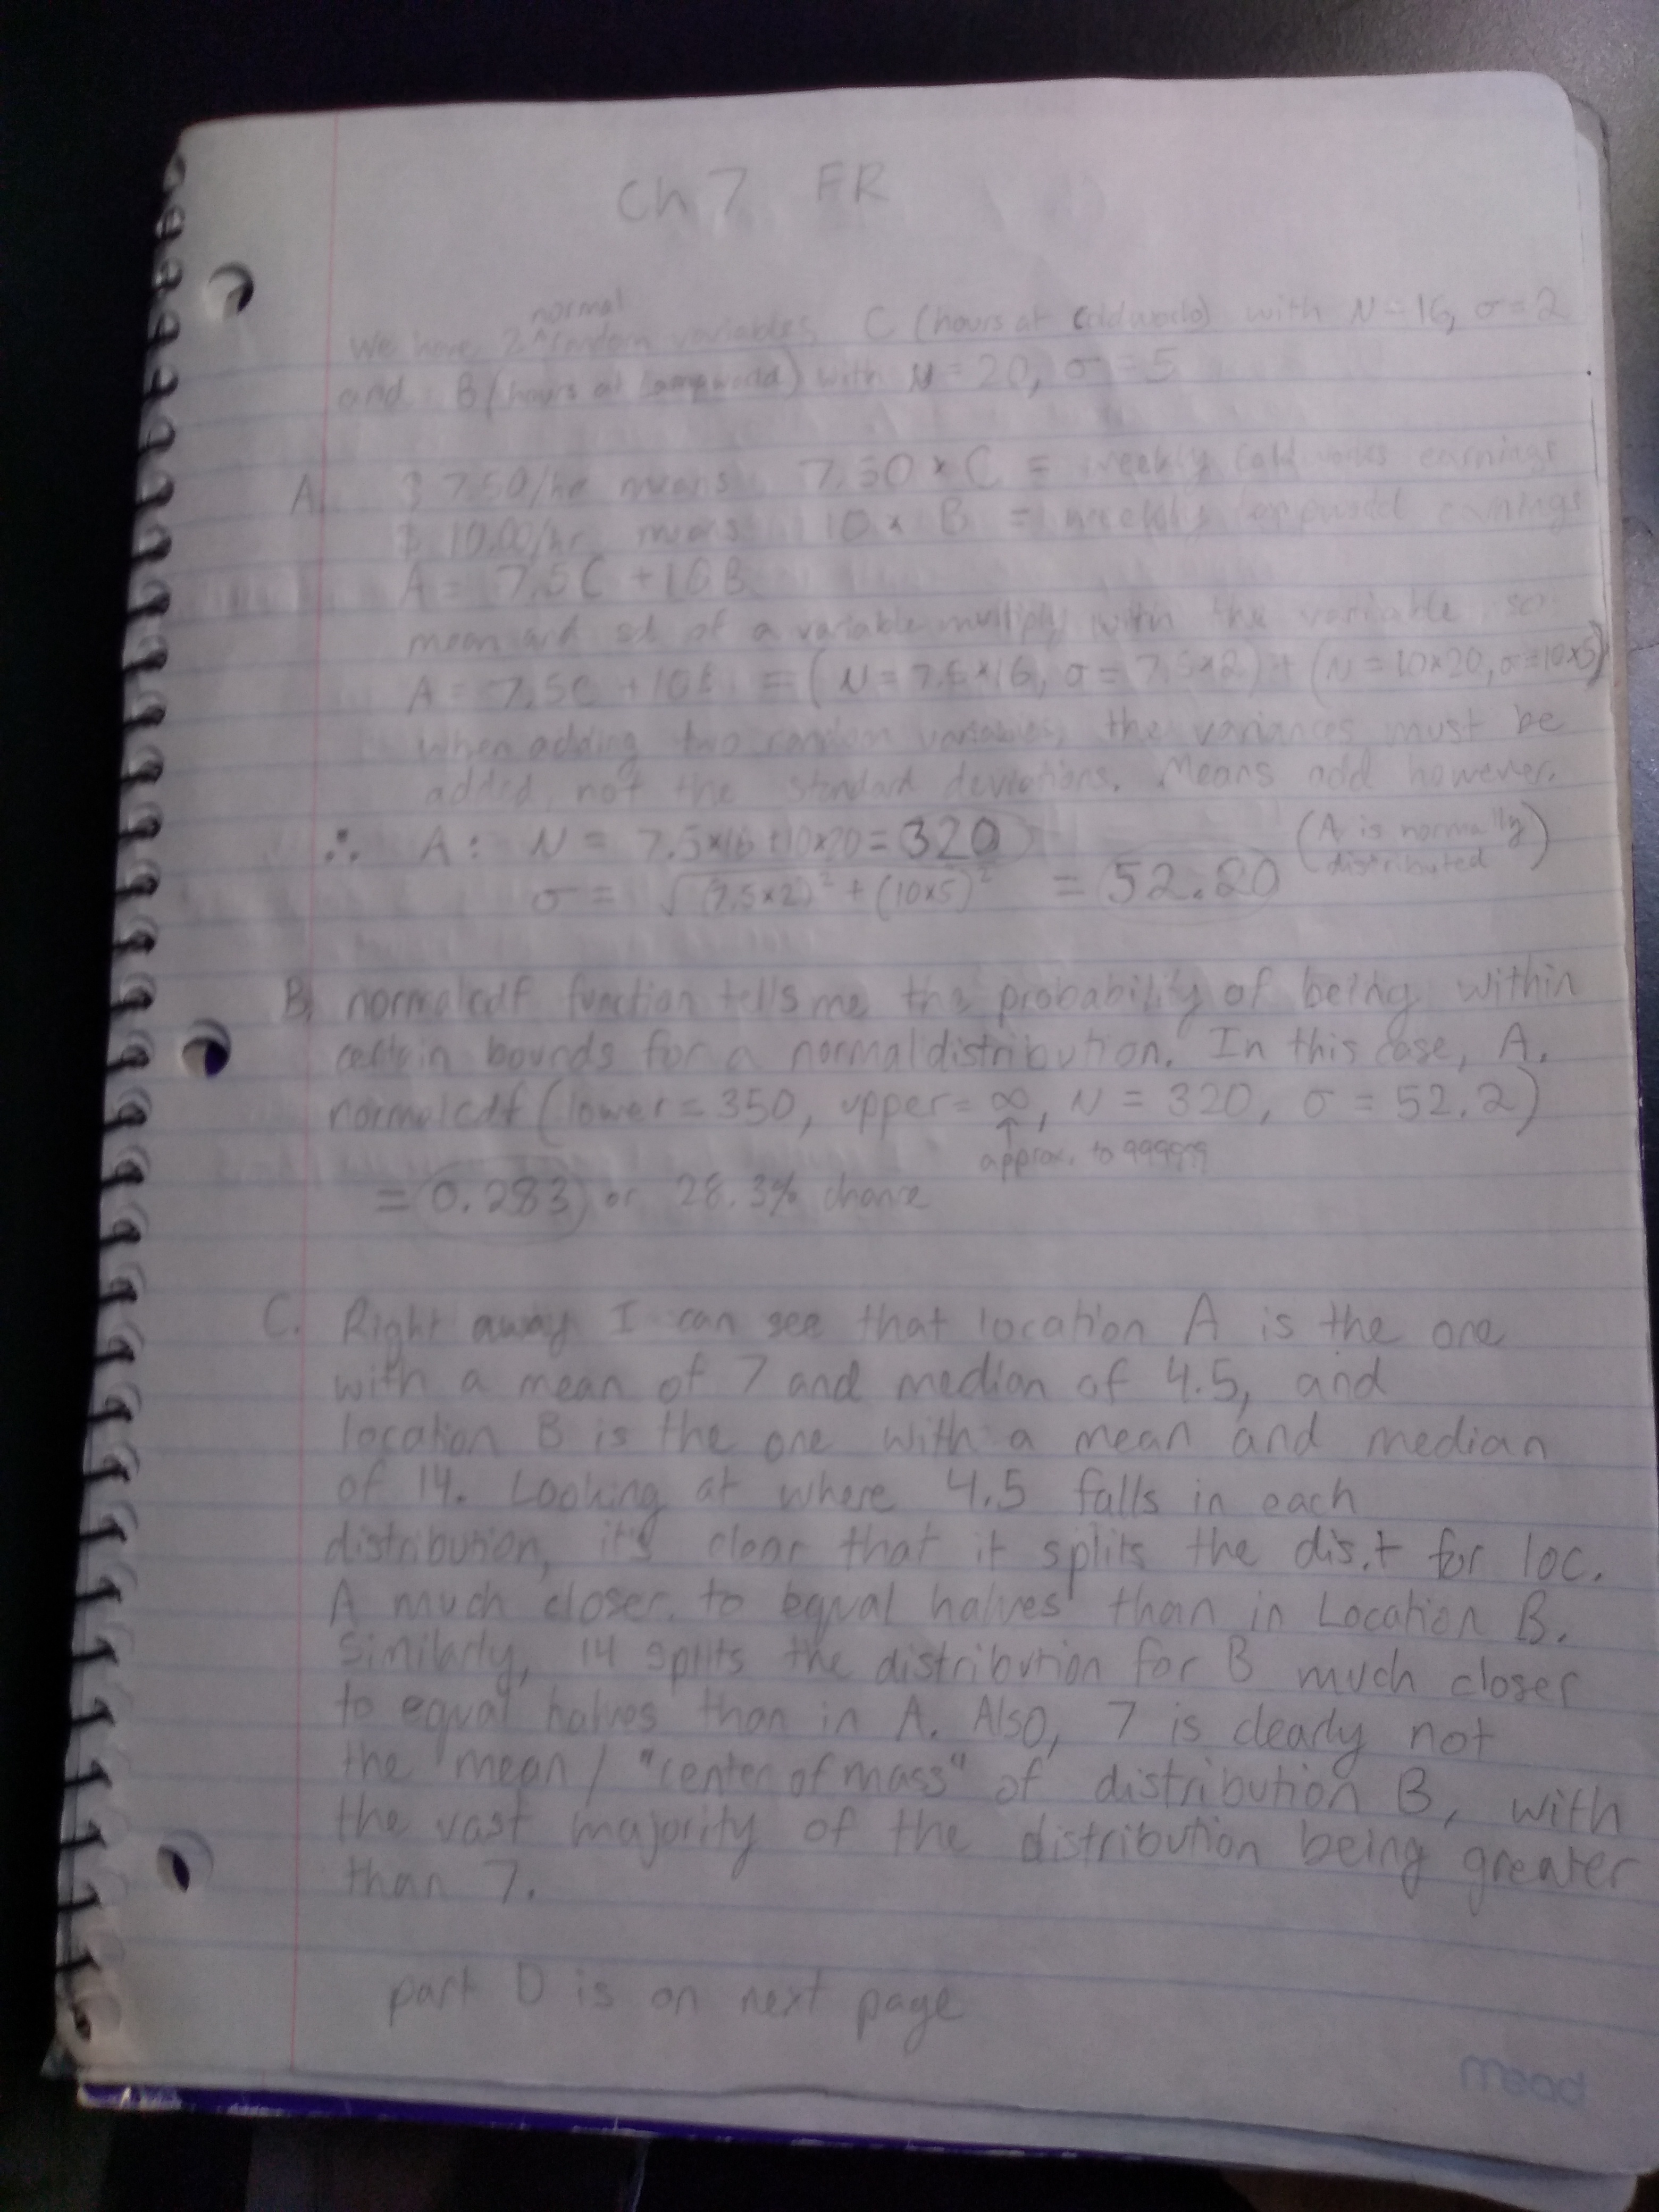 Ch 7 FR
normal
We have 2 ^ random variables, C (hours at Coldworld) with N = 16, σ = 2
and B (hours at Lampworld) with N = 20, σ = 5
A. $ 7.50/hr means 7.50 × C = weekly Coldworld earnings
$ 10.00/hr means 10 × B = weekly Lampworld earnings
A = 7.5C + 10B
mean and sd of a variable multiply with the variable so
A = 7.5C + 10B = (N = 7.5×16, σ = 7.5×2) + (N = 10×20, σ = 10×5)
when adding two random variables, the variances must be
added, not the standard deviations. Means add however.
∴ A: N = 7.5×16 + 10×20 = 320 (A is normally
σ = √(7.5×2)² + (10×5)² = 52.20 distributed)
B. normalcdf function tells me the probability of being within
certain bounds for a normal distribution. In this case, A.
normalcdf (lower = 350, upper = ∞, N = 320, σ = 52.2)
↑
approx. to 999999
= 0.283 or 28.3% chance
C. Right away I can see that location A is the one
with a mean of 7 and median of 4.5, and
location B is the one with a mean and median
of 14. Looking at where 4.5 falls in each
distribution, it's clear that it splits the dis.t for loc.
A much closer to equal halves than in Location B.
Similarly, 14 splits the distribution for B much closer
to equal halves than in A. Also, 7 is clearly not
the mean / "center of mass" of distribution B, with
the vast majority of the distribution being greater
than 7.
part D is on next page
mead